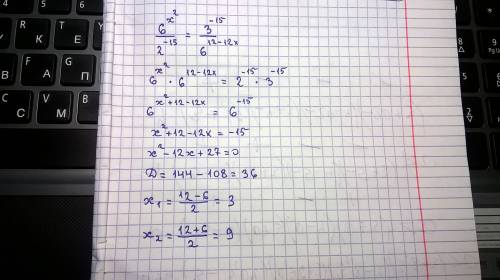 6^{x^2} / 2^{-15} = 3^{-15} / 6^{12-12x}
6^{x^2} · 6^{12-12x} = 2^{-15} · 3^{-15}
6^{x^2+12-12x} = 6^{-15}
x^2+12-12x = -15
x^2-12x+27=0
D = 144-108 = 36
x_1 = (12-6)/2 = 3
x_2 = (12+6)/2 = 9
К
Е
А
П
М